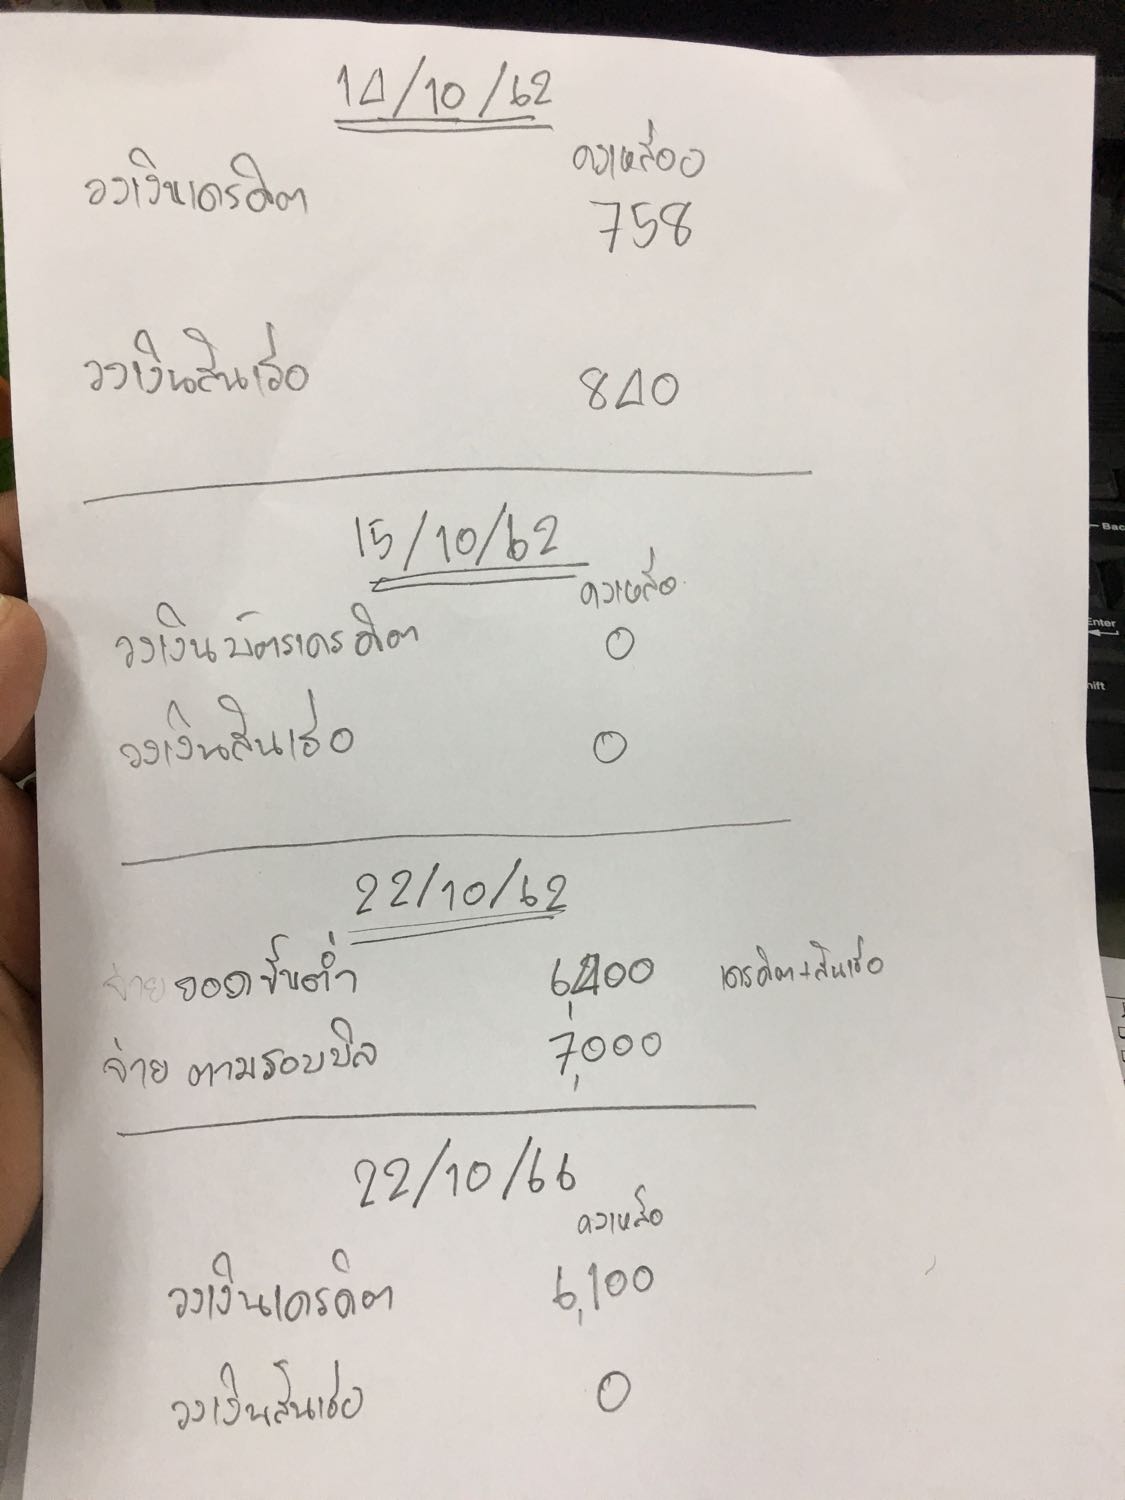 14/10/62
คงเหลือ
วงเงินเครดิต
758
วงเงินสินเชื่อ 840
15/10/62
คงเหลือ
วงเงินบัตรเครดิต 0
วงเงินสินเชื่อ 0
22/10/62
จ่ายยอดขั้นต่ำ 6,400 เครดิต+สินเชื่อ
จ่าย ตามรอบบิล 7,000
22/10/66
คงเหลือ
วงเงินเครดิต 6,100
วงเงินสินเชื่อ 0
Enter